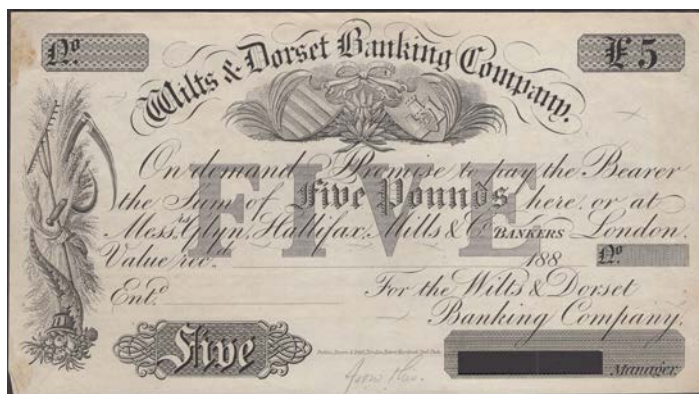 No.
£5
Wilts & Dorset Banking Company.
On demand I Promise to pay the Bearer
the Sum of Five Pounds here or at
Messrs. Glyn, Hallifax, Mills & Co. BANKERS London.
FIVE
Value recd. 188 No.
Entd. For the Wilts & Dorset
Banking Company,
Five
Manager.